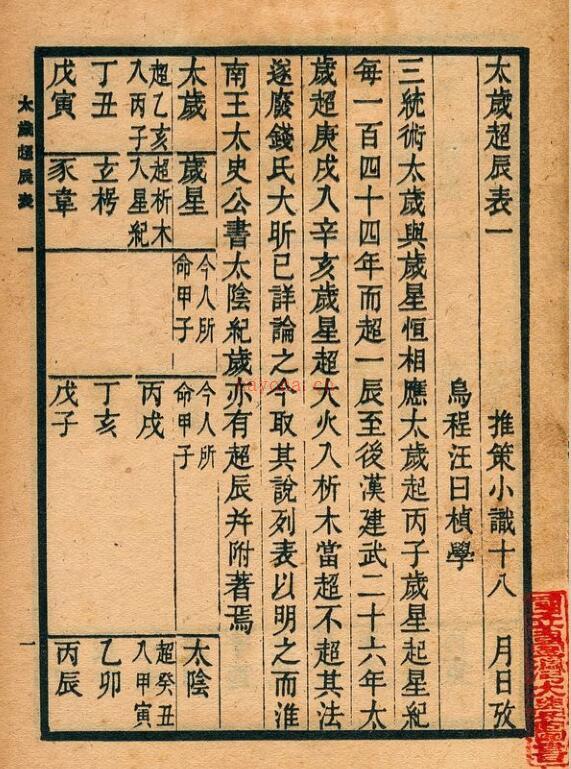 太歲超辰表一　推策小識十八　月日攷
烏程汪曰楨學
三統術太歲與歲星恒相應太歲起丙子歲星起星紀
每一百四十四年而超一辰至後漢建武二十六年太
歲超庚戌入辛亥歲星超大火入析木當超不超其法
遂廢錢氏大昕已詳論之今取其說列表以明之而淮
南王太史公書太陰紀歲亦有超辰并附著焉
太歲　歲星　今人所命甲子　今人所命甲子　太陰
超乙亥入丙子　超析木入星紀　丙戌　超癸丑入甲寅
丁丑　玄枵　丁亥　乙卯
戊寅　豕韋　戊子　丙辰
太歲超辰表　一　一